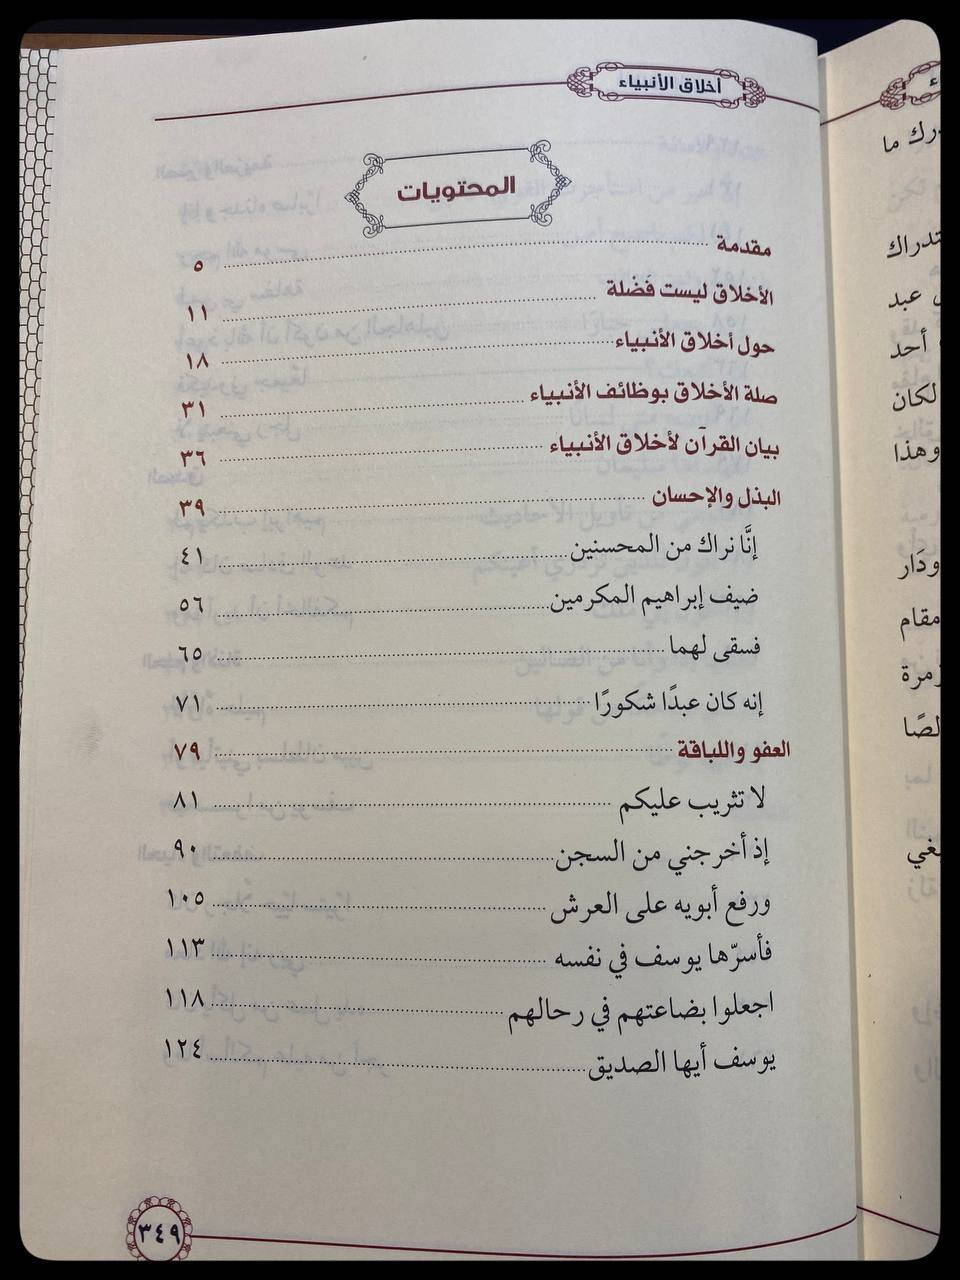 أخلاق الأنبياء
المحتويات
مقدمة ٥
الأخلاق ليست فَضْلة ١١
حول أخلاق الأنبياء ١٨
صلة الأخلاق بوظائف الأنبياء ٣١
بيان القرآن لأخلاق الأنبياء ٣٦
البذل والإحسان ٣٩
إنَّا نراك من المحسنين ٤١
ضيف إبراهيم المكرمين ٥٦
فسقى لهما ٦٥
إنه كان عبدًا شكورًا ٧١
العفو واللباقة ٧٩
لا تثريب عليكم ٨١
إذ أخرجني من السجن ٩٠
ورفع أبويه على العرش ١٠٥
فأسرّها يوسف في نفسه ١١٣
اجعلوا بضاعتهم في رحالهم ١١٨
يوسف أيها الصديق ١٢٤
٣٤٩
ما
عبد
أحد
لكان
وهذا
ودَار
مقام
زمرة